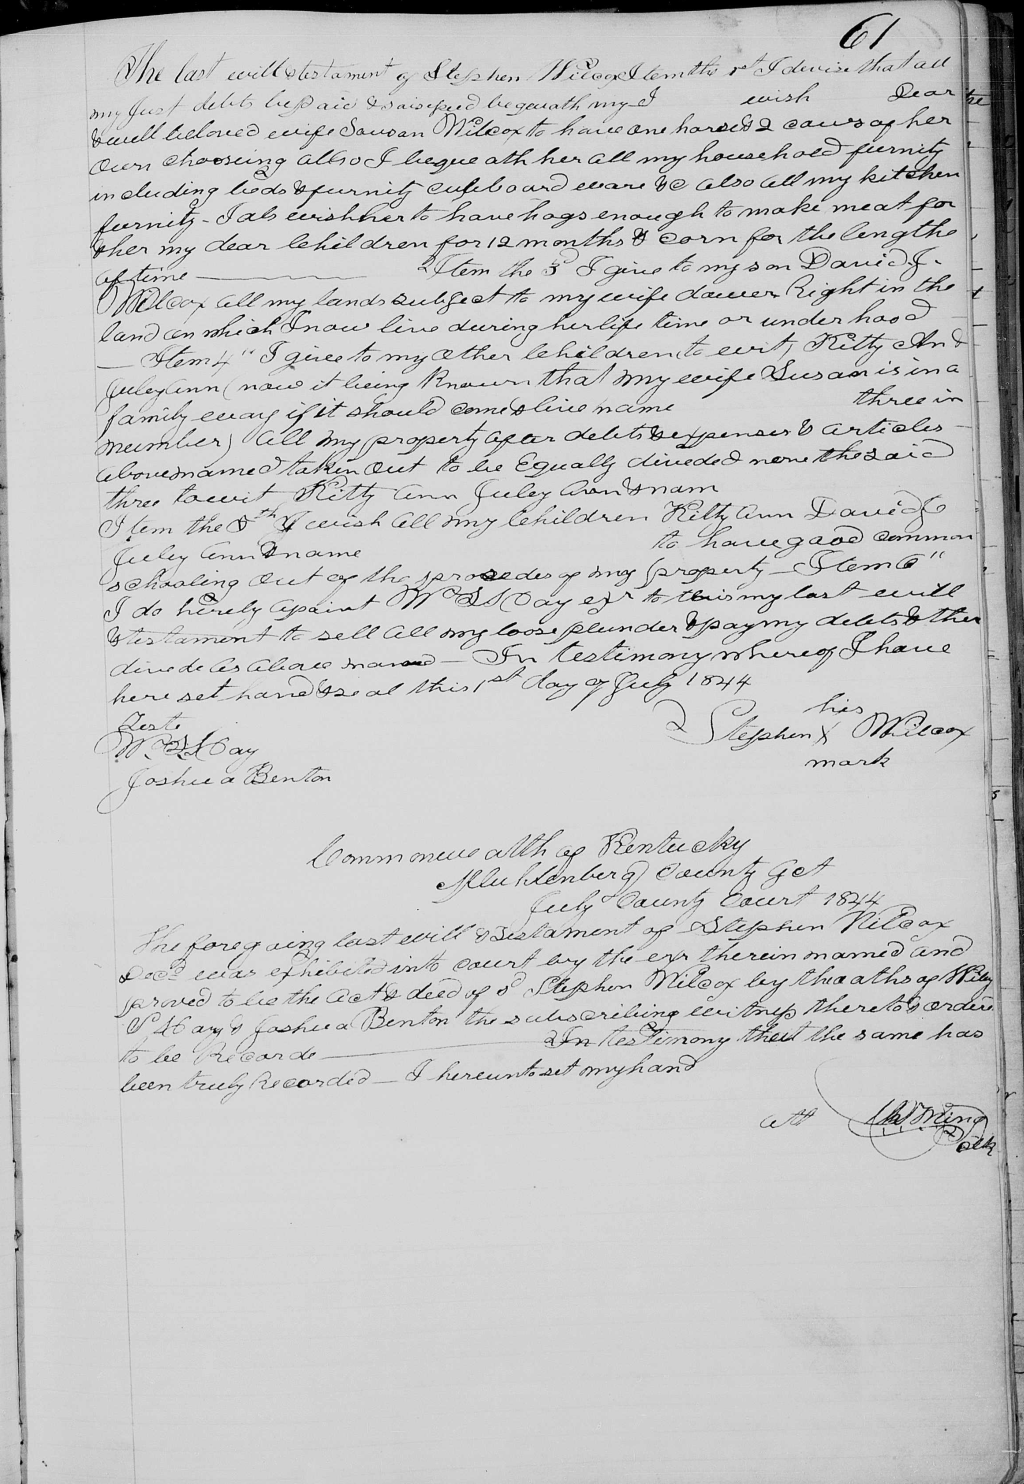 61
The last will & testament of Stephen Wilcox Item the 1st I devise that all
my just debts be paid & I bequath my I wish Dear
& well beloved wife Sousan Wilcox to have one horse & 2 cows of her
own choosing allso I bequeath her all my household furnity
including beds & furnity cupboard ware &c also all my kitchen
furnity - I als wish her to have hogs enough to make meat for
& her my dear Children for 12 months & corn for the lengthe
of time — Item the 3d I give to my son David J.
Wilcox all my lands subject to my wife dower Right in the
land on which I now live during her life time or under hood
— Item 4" I give to my other Children (to wit) Kitty An &
Juley Ann (now it being known that my wife Susan is in a
family way if it should come & live name three in
number) all my property after debts & expenses & articles
above named taken out to be Equally divided now the said
three towit Kitty Ann Juley Ann & nam
Item the 5th I wish all my Children Kitty Ann David J
Juley Ann & name to have good common
schooling out of the prosedes of my property — Item 6"
I do hereby apoint Wm S Day exr to this my last will
& testament to sell all my loose plunder & pay my debts & then
divide as above named — In testimony where of I have
here set hand & seal this 1st day of July 1844
Teste
his
Wm S Day
Stephen X Wilcox
Joshua Benton
mark
Commonwealth of Kentucky
Muhlenberg County Sct
July County Court 1844
The foregoing last will & testament of Stephen Wilcox
Decd was exhibited into court by the exr therein named and
proved to be the act & deed of sd Stephen Wilcox by tha oaths of Wiley
S Day & Joshua Benton the subscribing witness thereto & ordered
to be Recorde — In testimony that the same has
been truly Recorded — I hereunto set my hand
att
Wing
Clk